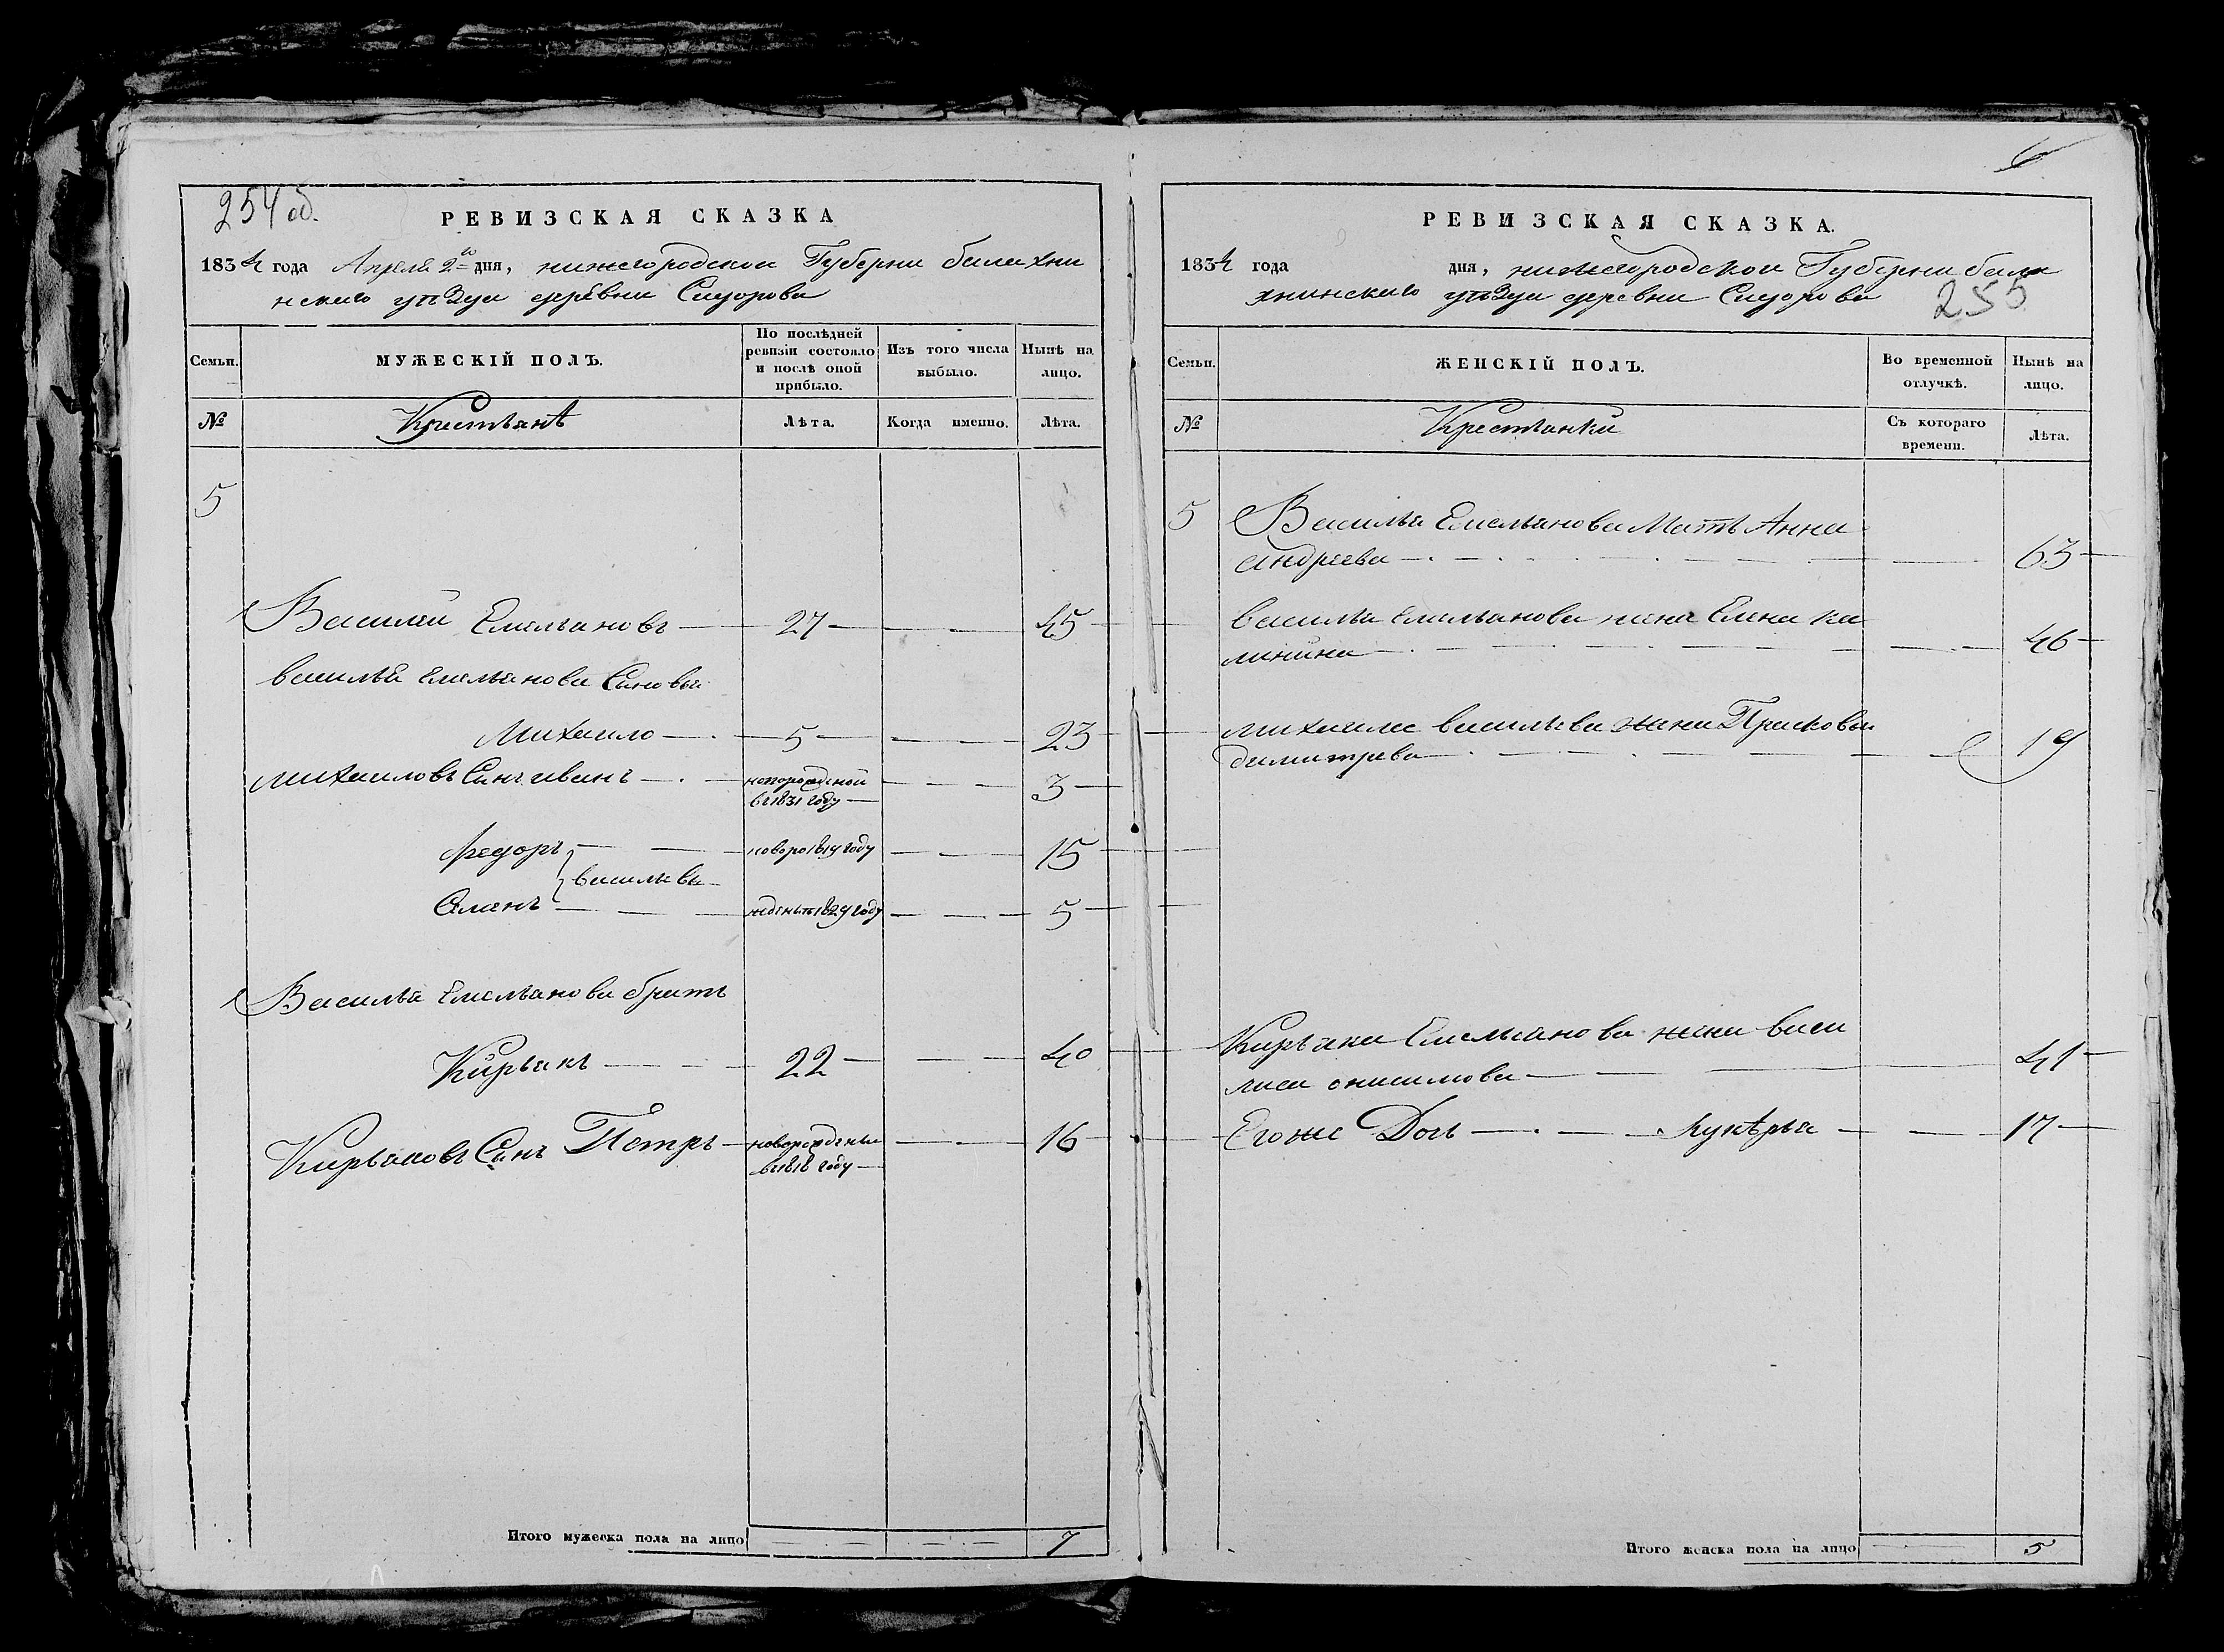 254 об.
РЕВИЗСКАЯ СКАЗКА
1834 года Апреля 2го дня, нижегородской Губерни балахни
нскаго уъзда деревни Сидорова
Семьи.
МУЖЕСКІЙ ПОЛЪ.
По послѣдней ревизіи состояло и послѣ оной прибыло.
Изъ того числа выбыло.
Нынѣ на лицо.
№
Крестьянѣ
Лѣта.
Когда именно.
Лѣта.
5
Василей Емельяновъ 27 45
василья Емельянова Сановья
Михаило 5 23
михаиловъ Санъ иванъ
новорожденой
въ 1831 году
3
федоръ новоро 1819 году 15
васильевы
жденыя 1829 году 5
Василья Емельянова братъ
Кирьякъ 22 40
Кирьяковъ Санъ Петръ
новорождены
въ 1818 году
16
Итого мужеска пола на лицо 7
6
РЕВИЗСКАЯ СКАЗКА.
1834 года дня, нижегородской Губерни бала
хнинскаго уъзда деревни Сидорова
255
Семьи.
ЖЕНСКІЙ ПОЛЪ.
Во временной отлучкѣ.
Нынѣ на лицо.
№
Крестьянки
Съ котораго времени.
Лѣта.
5 Василья Емельянова Мать Анна
андреева 63
василья Емельянова жена Елена ка
линина 46
михаила васильева жена Прасковья
димитрева 19
Кирьяка Емельянова жена васи
лиса онисимова 41
Егоже Дочь лукѣрья 17
Итого женска пола на лицо 5